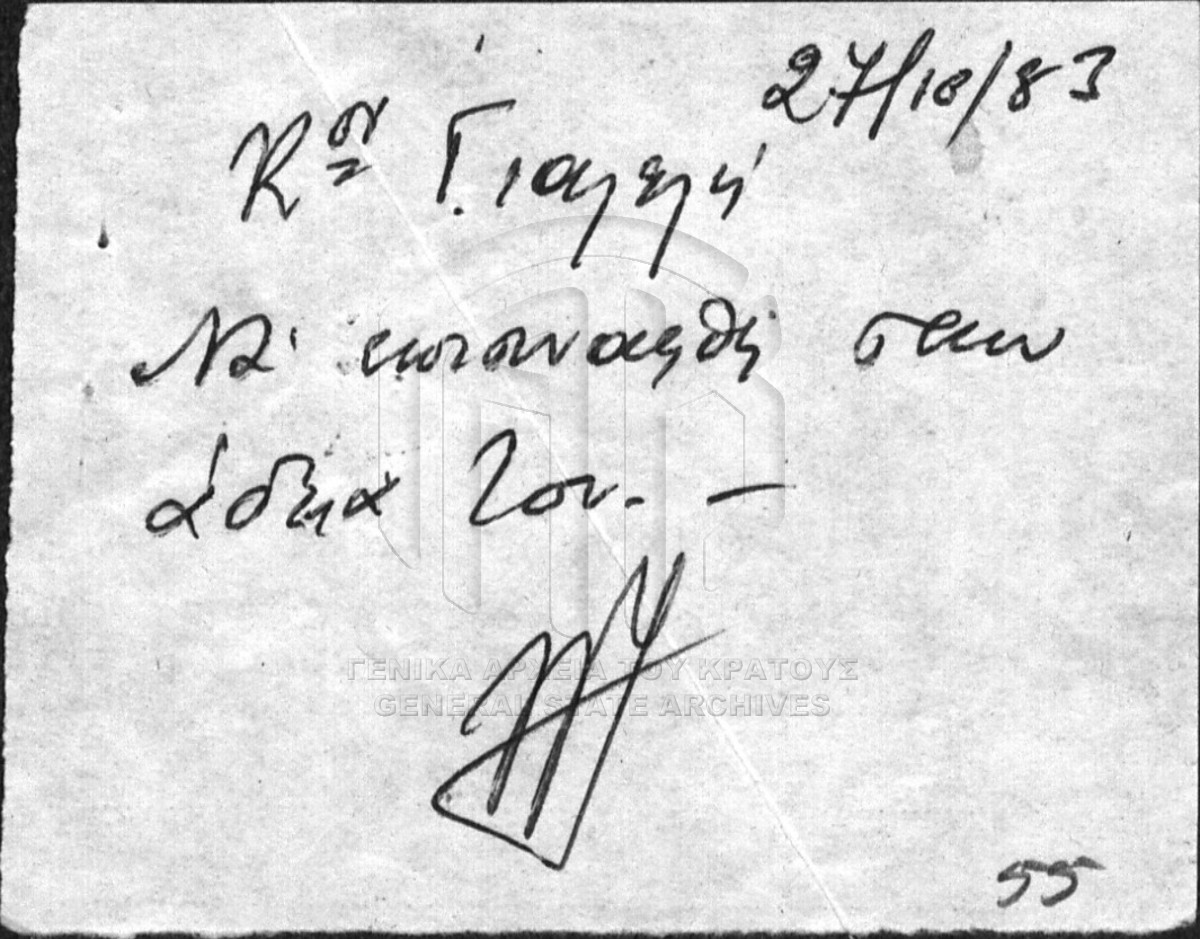 27/10/83
Κον
Να επισυναφθή στην
άδεια του. –
ΓΕΝΙΚΑ ΑΡΧΕΙΑ ΤΟΥ ΚΡΑΤΟΥΣ
GENERAL STATE ARCHIVES
55